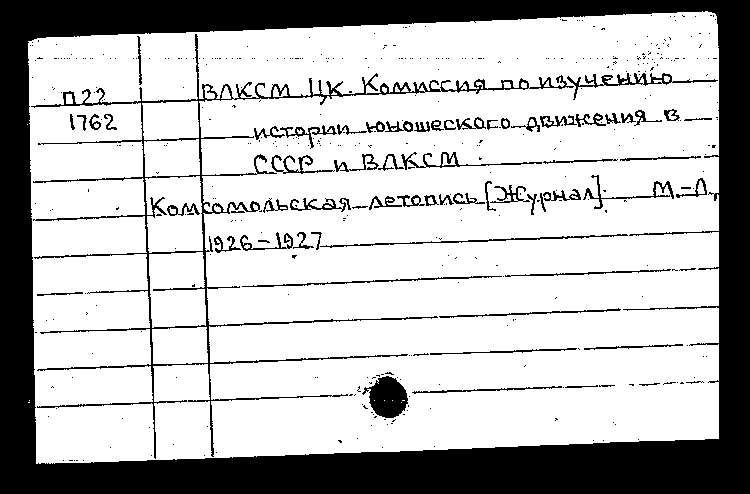 П22
1762
ВЛКСМ ЦК. Комиссия по изучению
истории юношеского движения в
СССР и ВЛКСМ.
Комсомольская летопись [Журнал]. М.-Л.,
1926-1927